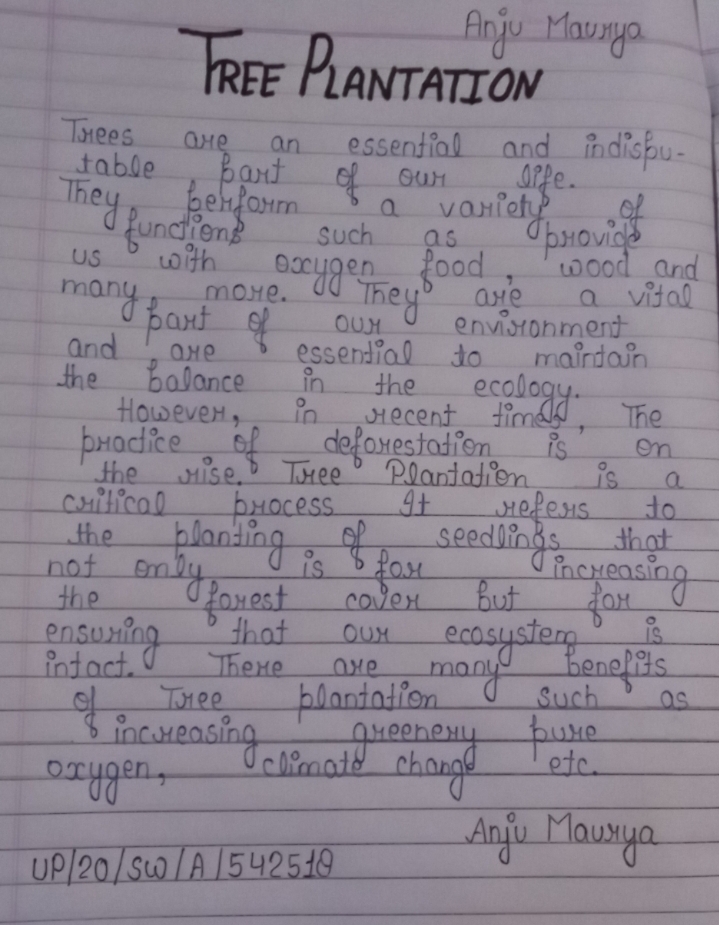 Anju Maurya
TREE PLANTATION
Trees are an essential and indispu-
table part of our life.
They perform a variety of
functions such as provide
us with oxygen food, wood and
many more. They are a vital
part of our environment
and are essential to maintain
the balance in the ecology.
However, in recent times, The
practice of deforestation is on
the rise. Tree Plantation is a
critical process It refers to
the planting of seedlings that
not only is for increasing
the forest cover but for
ensuring that our ecosystem is
intact. There are many benefits
of Tree plantation such as
increasing greenery pure
oxygen, climate change etc.
Anju Maurya
UP/20/SW/A/542518